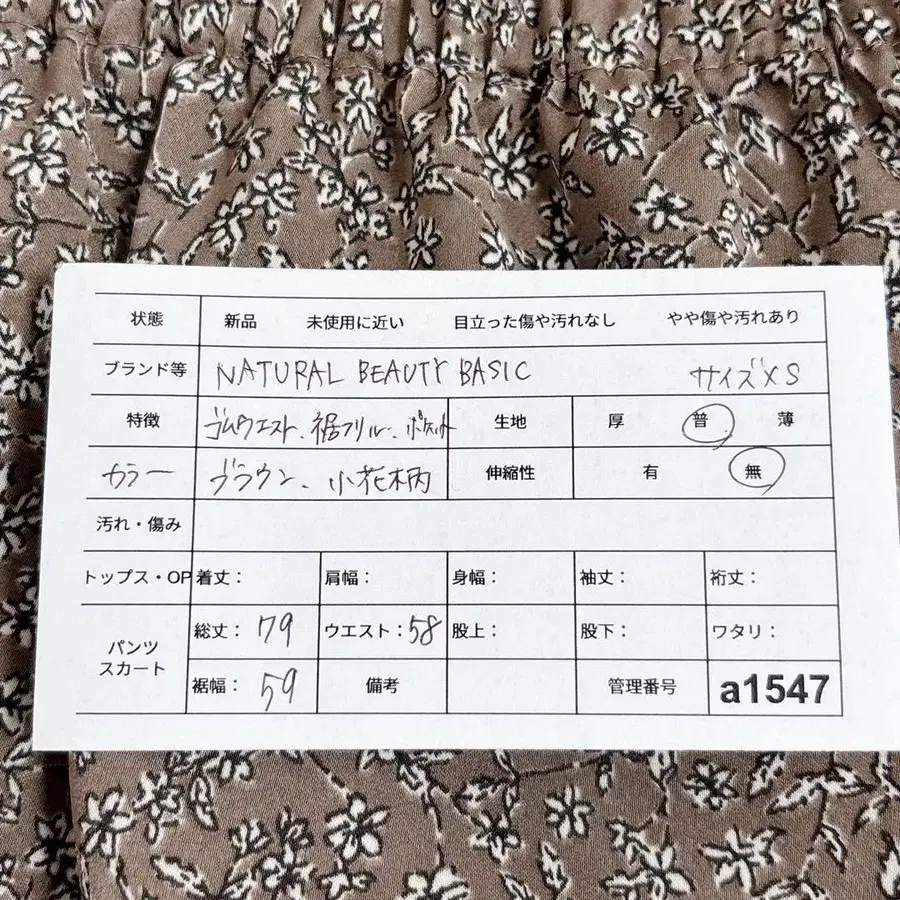 状態 新品 未使用に近い 目立った傷や汚れなし やや傷や汚れあり
ブランド等 NATURAL BEAUTY BASIC サイズXS
特徴 ゴムウエスト、裾フリル、ポケット 生地 厚 普 薄
カラー ブラウン、小花柄 伸縮性 有 無
汚れ・傷み
トップス・OP 着丈： 肩幅： 身幅： 袖丈： 裄丈：
パンツ スカート 総丈：79 ウエスト：58 股上： 股下： ワタリ：
裾幅：59 備考 管理番号 a1547